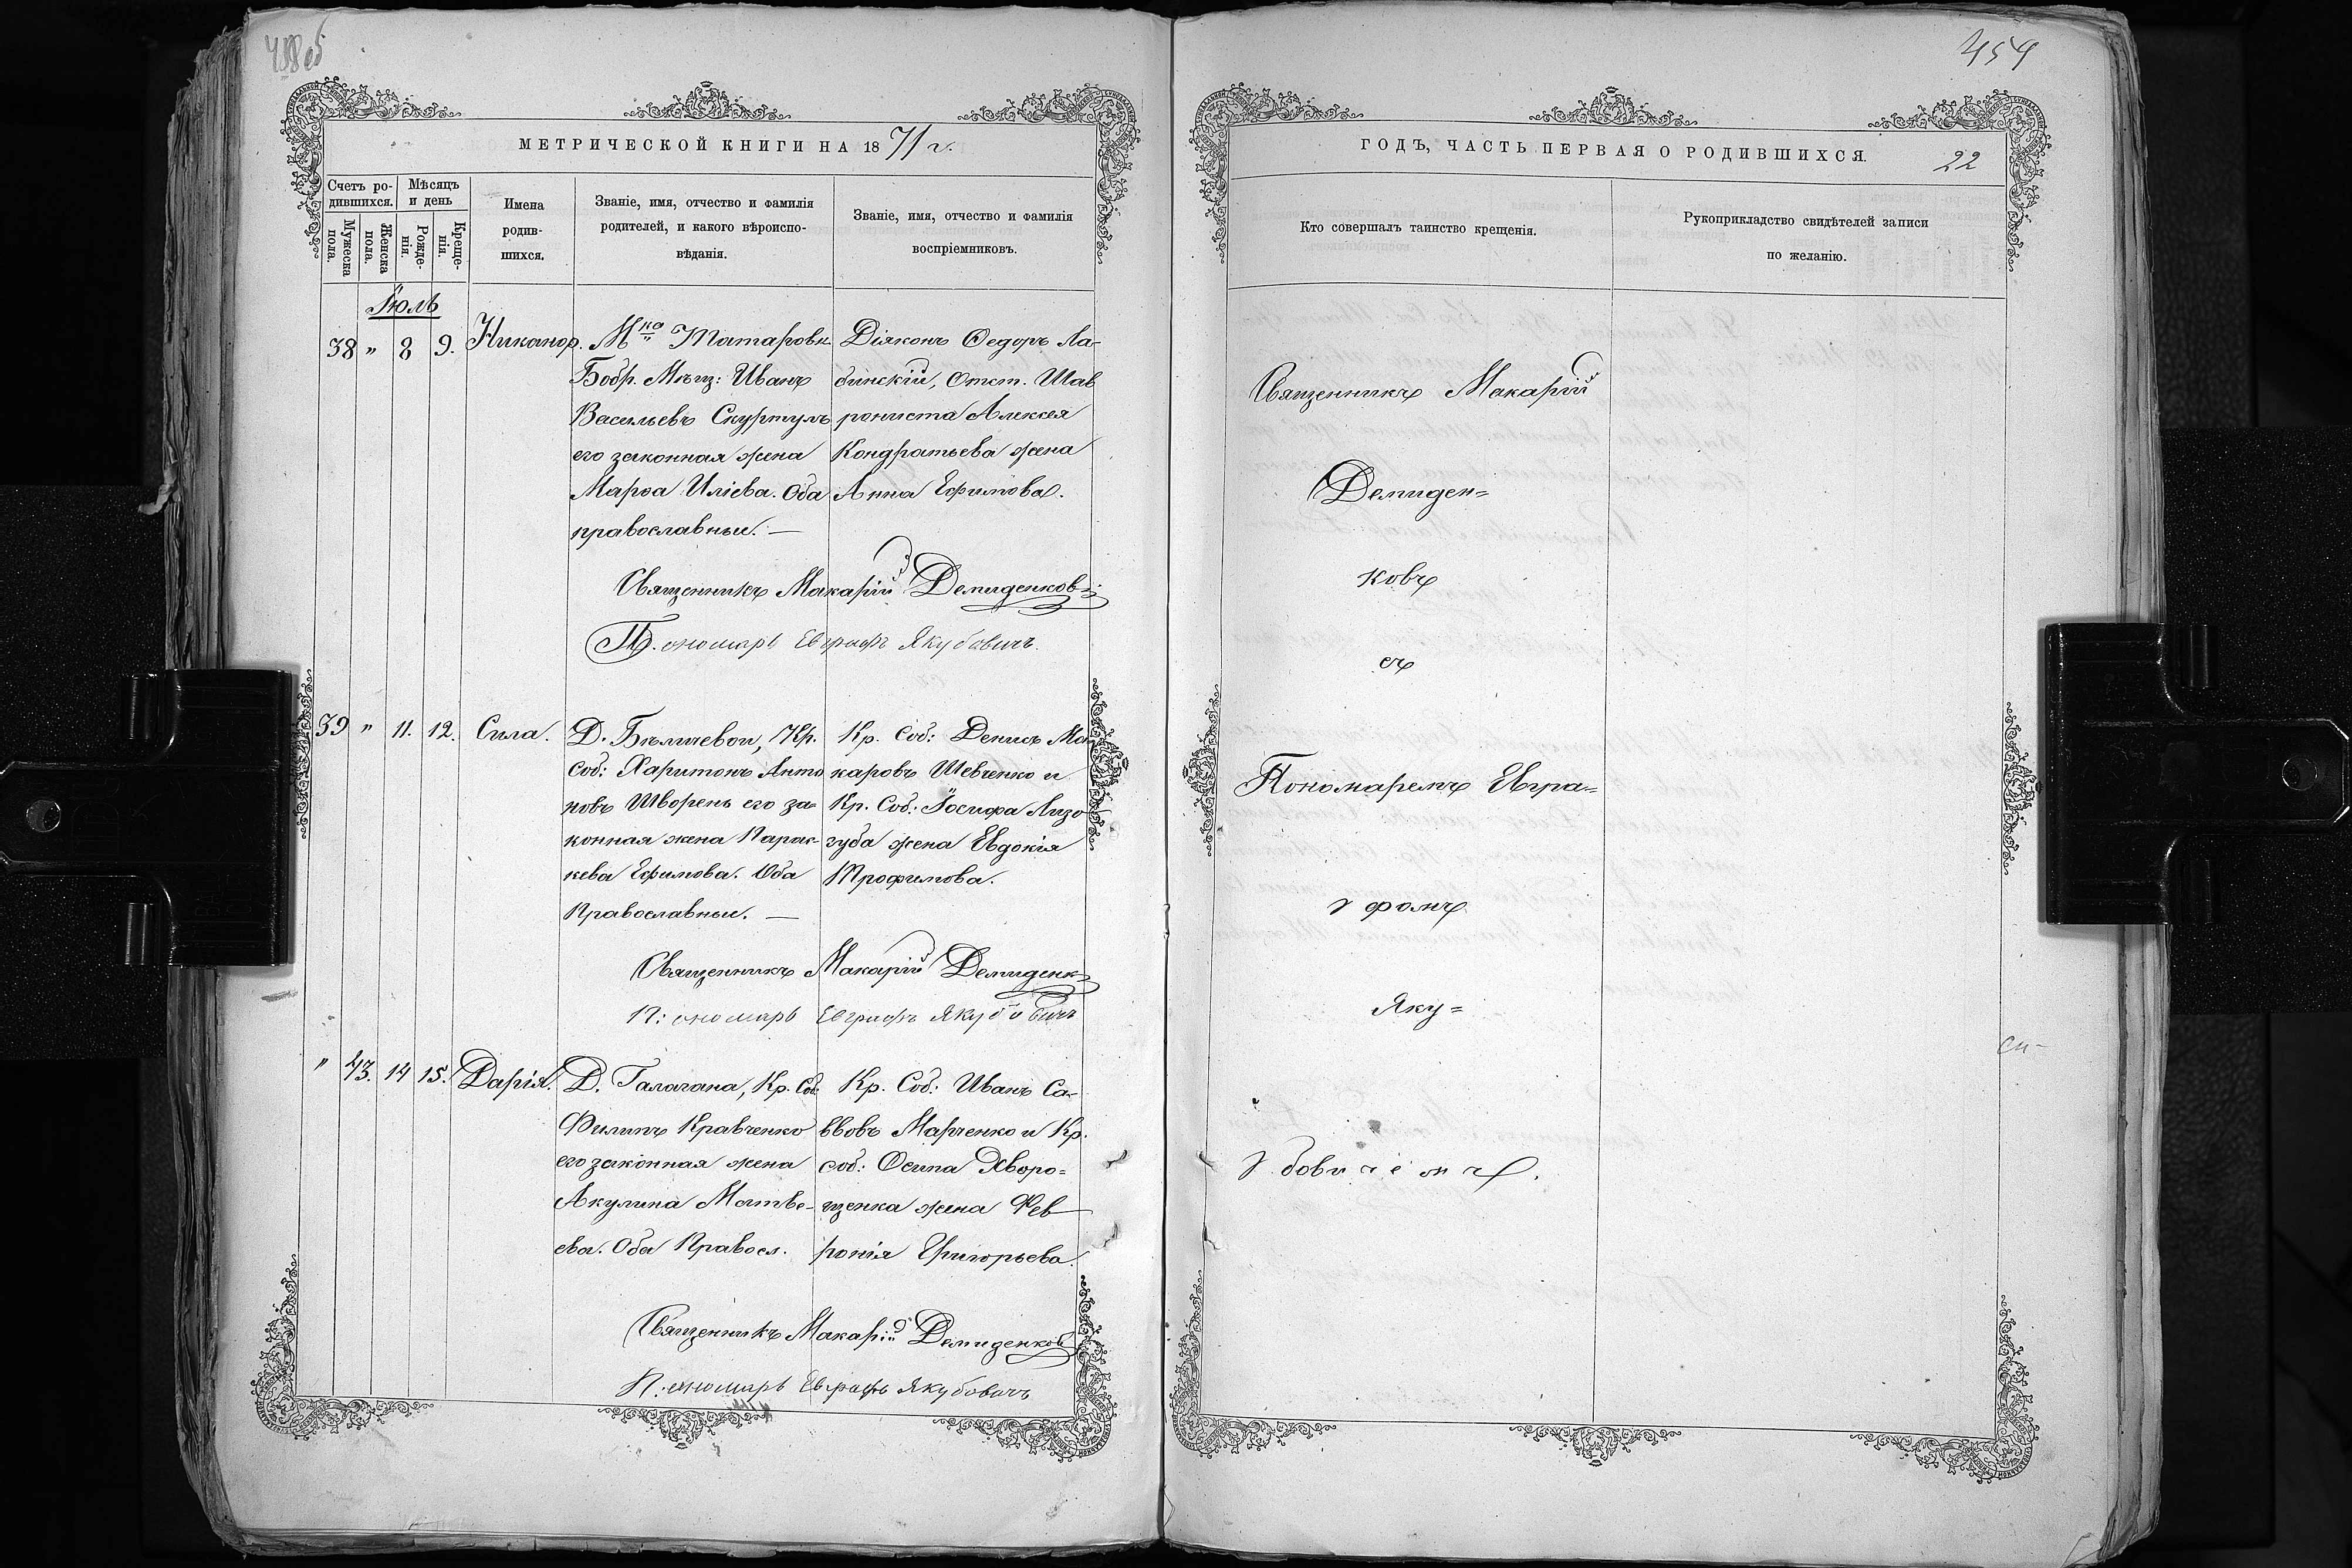 458 об
МЕТРИЧЕСКОЙ КНИГИ НА 1871 г.
Счетъ ро-
дившихся.
Мѣсяцъ
и день
Мужеска
пола.
Женска
пола.
Рожде-
нія.
Креще-
нія.
Имена
родив-
шихся.
Званіе, имя, отчество и фамилія
родителей, и какого вѣроиспо-
вѣданія.
Званіе, имя, отчество и фамилія
воспріемниковъ.
Іюль
38 " 8 9. Никанор.
М-ка Татаровк.
Бобр. Мѣщ: Иванъ
Васильевъ Скуртулъ
его законная жена
Марѳа Иліева. Оба
православные. —
Діяконъ Ѳедоръ Ла-
бинскій, Отст. Шав
рониста Алексея
Кондратьева жена
Анна Ефимова.
Священникъ Макарій Демиденковъ
П. ономарь Евграфъ Якубовичъ.
39 " 11. 12. Сила.
Д. Бѣличевои, Кр.
Соб: Харитонъ Анто
новъ Шворень его за-
конная жена Парас-
кева Ефимова. Оба
Православные. —
Кр. Соб: Денисъ Ма-
каровъ Шевченко и
Кр. Соб: Іосифа Лизо
губа жена Евдокія
Трофимова.
Священникъ Макарій Демиденк
П: ономарь Евграфъ Якубовичъ
" 43. 14 15. Дарія.
Д. Галагана, Кр. Соб:
Филипъ Кравченко
его законная жена
Акулина Матве-
ева. Оба Правосл.
Кр. Соб: Иванъ Са-
ввовъ Марченко и Кр.
соб: Осипа Хворо-
щенка жена Фев
ронія Григорьева.
Священникъ Макарій Демиденков
П: ономарь Евграфъ Якубовичъ
454
ГОДЪ, ЧАСТЬ ПЕРВАЯ О РОДИВШИХСЯ. 22
Кто совершалъ таинство крещенія.
Рукоприкладство свидѣтелей записи
по желанію.
Священникъ Макарій
Демиден=
ковъ
съ
Пономаремъ Евгра=
фомъ
Яку=
бовичемъ.